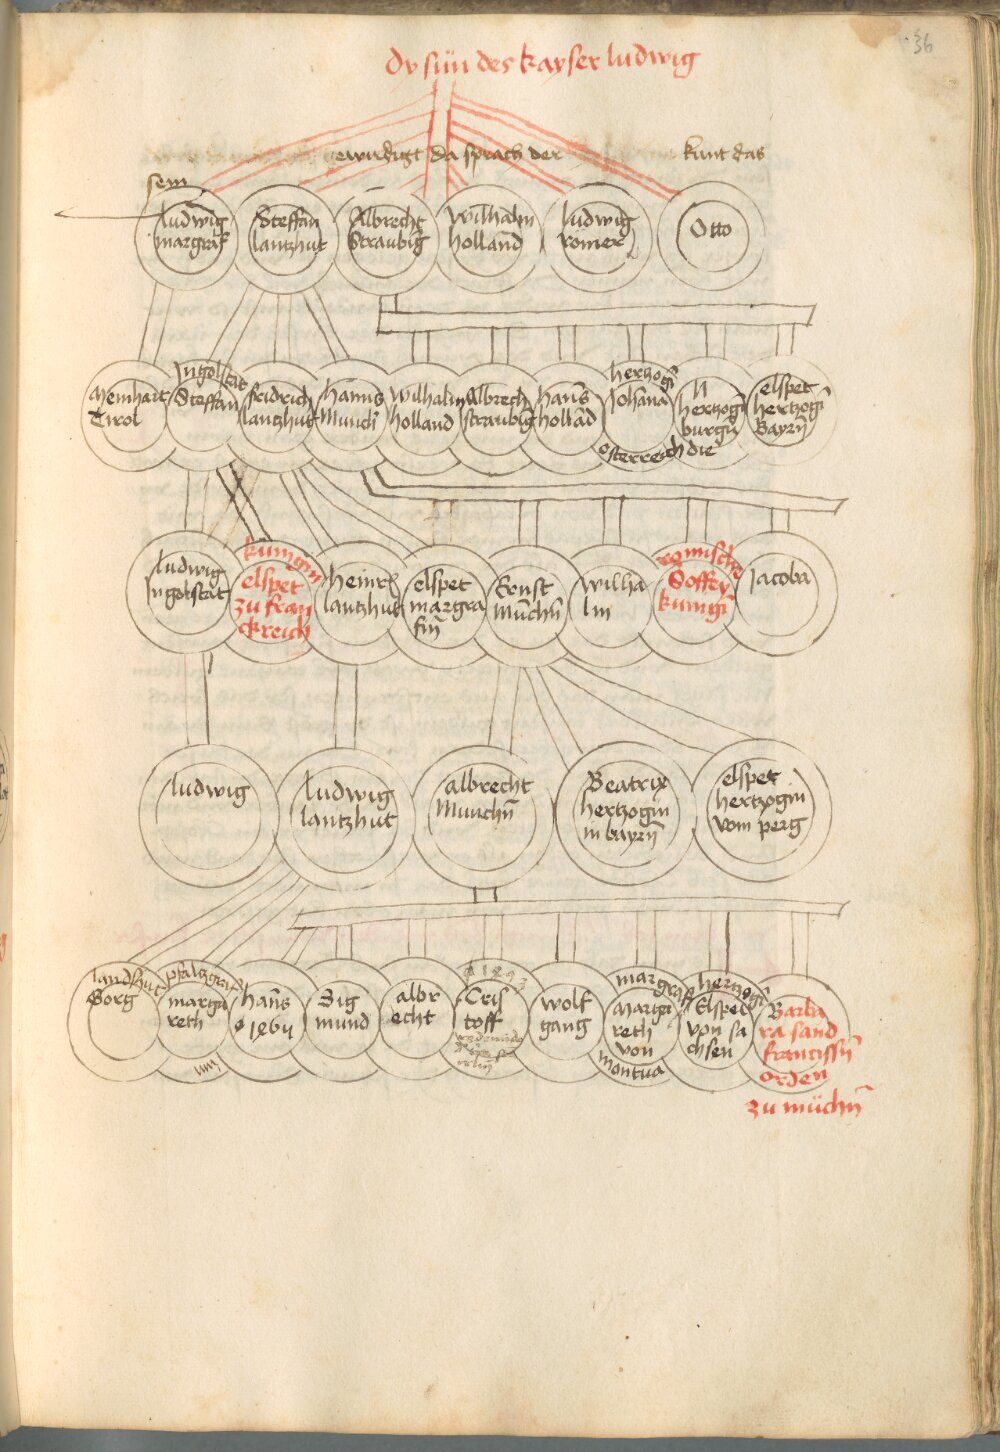 36
Dy sün des kayser ludwig
gewirdigt da sprach der
kunt das
sein
ludwig
margraf
Steffan
lantzhut
Albrecht
Straubiḡ
Wilhalm
holland
ludwig
romer
Otto
Meinhart
Tirol
Ingolstat
Steffan
fridrich
lantzhut
hanns
Munch̄
Wilhalm
holland
Albrech
straubiḡ
hans
hollād
hertzogī
Johana
osterreich
h
hertzogī
burgū
die
elspet
hertzogī
Bayrn̄
ludwig
Ingolstat
kunigin
elspet
zu fran
ckreich
heinrich
lantzhut
elspet
margra
fin̄
Ernst
Münchn̄
wilha
lm
romische
Soffey
kunigī
Jacoba
ludwig
ludwig
lantzhut
albrecht
Munchn̄
Beatrix
hertzogin
in bayrn̄
elspet
hertzogin
vom perg
landshut
Gorg
pfaltzgraf
marga
reth
hans
1464
Sig
mund
albr
echt
1493
Cris
toff
wolf
gang
margraf
Margr
reth
von
mantua
hertzogī
Elspet
von sa
chsen
Barba
ra sand
francissn̄
orden
zu müchn̄